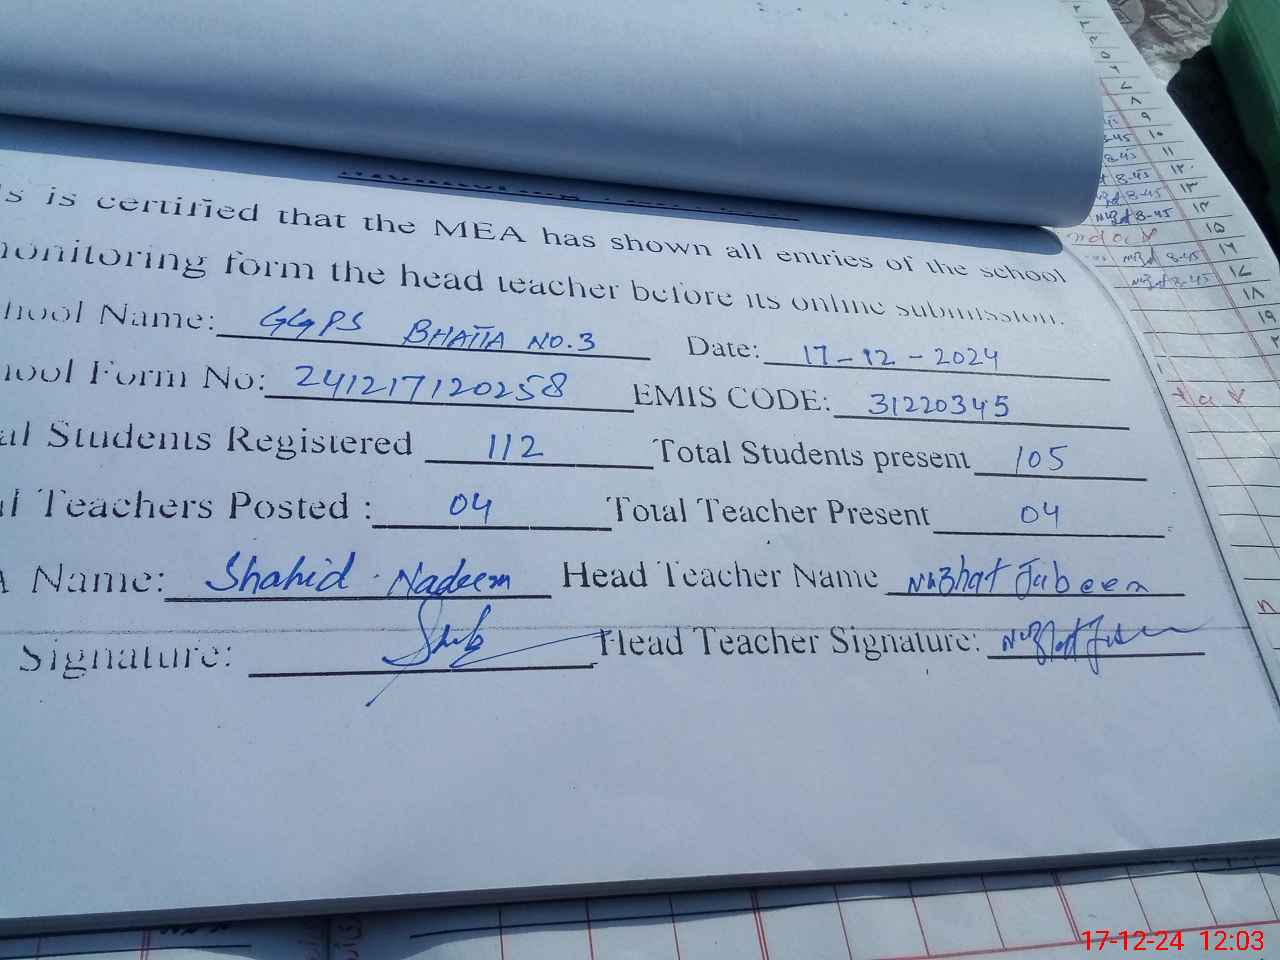 s is certified that the MEA has shown all entries of the school
monitoring form the head teacher before its online submission.
hool Name: GGPS BHATTA NO.3 Date: 17-12-2024
hool Form No: 241217120258 EMIS CODE: 31220345
al Students Registered 112 Total Students present 105
l Teachers Posted : 04 Total Teacher Present 04
A Name: Shahid Nadeem Head Teacher Name Nuzhat Jabeen
Signature: Head Teacher Signature: Nuzhat
8-45
۹
8-45 ۱۰
8-45 ۱۱
8-45 ۱۲
8-45 ۱۳
8-45 ۱۴
۱۵
8-45 ۱۶
8-45 ۱۷
۱۸
۱۹
17-12-24 12:03